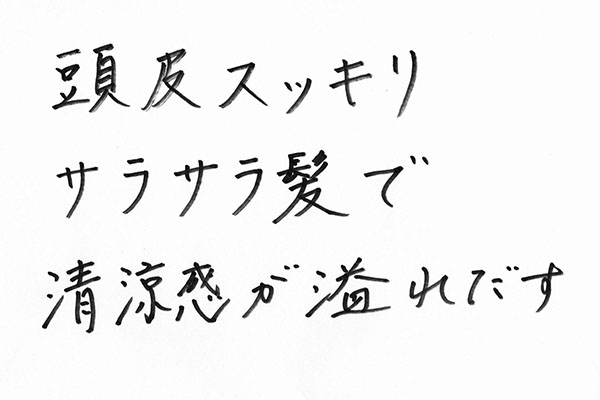 頭皮スッキリ
サラサラ髪で
清涼感が溢れだす